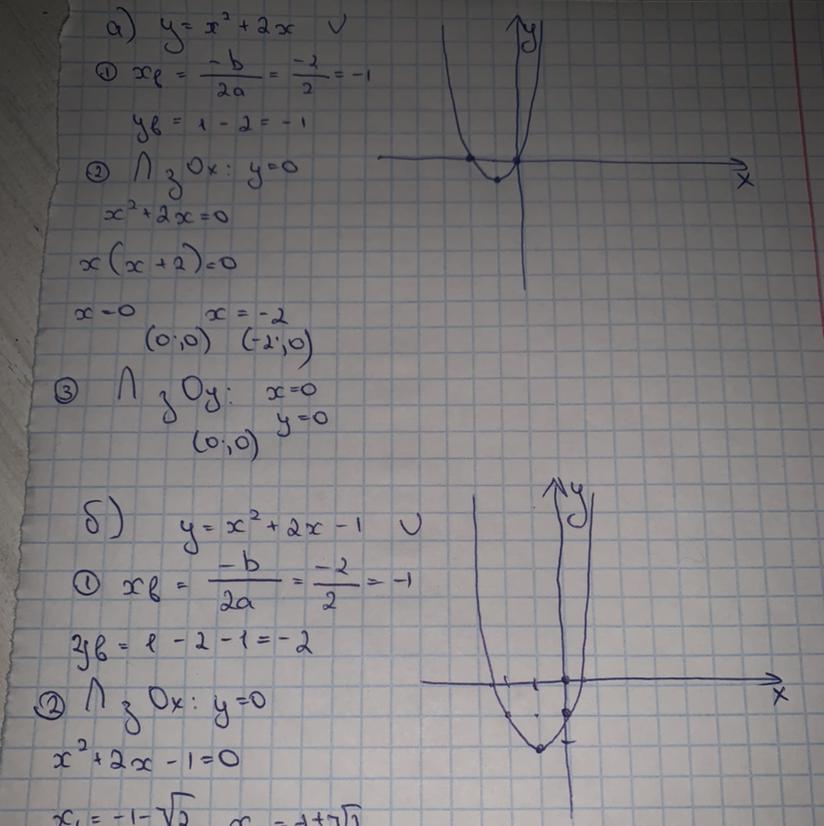 а) y = x² + 2x ∪
① xв = -b/2a = -2/2 = -1
yв = 1 - 2 = -1
② ∩ з Ox: y=0
x² + 2x = 0
x(x+2)=0
x=0 x = -2
(0;0) (-2;0)
③ ∩ з Oy: x=0
y=0
(0;0)
y
x
б) y = x² + 2x - 1 ∪
① xв = -b/2a = -2/2 = -1
yв = 1 - 2 - 1 = -2
② ∩ з Ox: y=0
x² + 2x - 1 = 0
x₁ = -1-√2 x = -1+√2
y
x